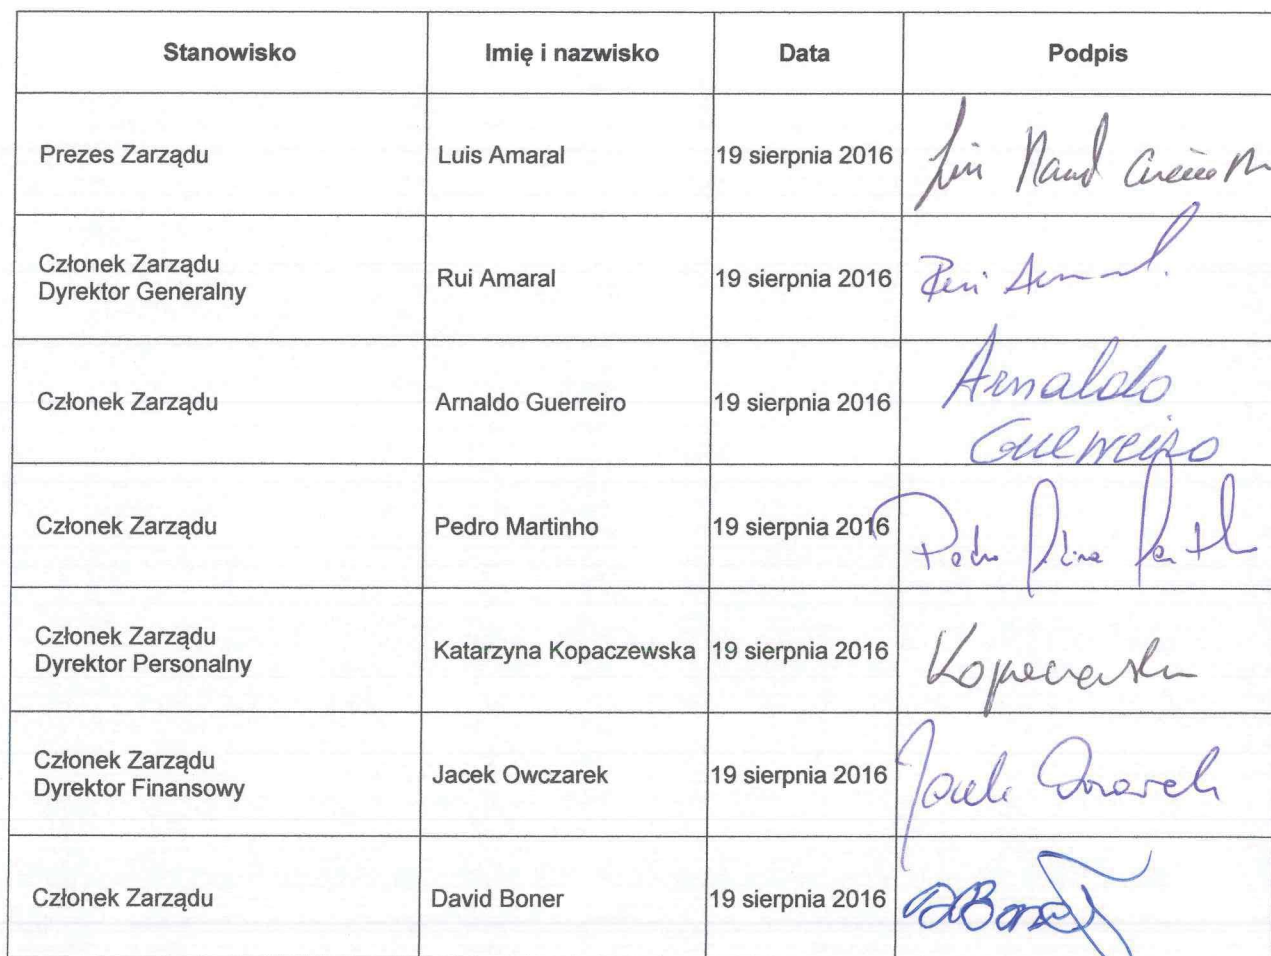 Stanowisko Imię i nazwisko Data Podpis
Prezes Zarządu Luis Amaral 19 sierpnia 2016
Członek Zarządu
Dyrektor Generalny Rui Amaral 19 sierpnia 2016 Rui Amaral
Członek Zarządu Arnaldo Guerreiro 19 sierpnia 2016 Arnaldo
Guerreiro
Członek Zarządu Pedro Martinho 19 sierpnia 2016 Pedro
Członek Zarządu
Dyrektor Personalny Katarzyna Kopaczewska 19 sierpnia 2016 Kopaczewska
Członek Zarządu
Dyrektor Finansowy Jacek Owczarek 19 sierpnia 2016 Jacek Owczarek
Członek Zarządu David Boner 19 sierpnia 2016 DBoner